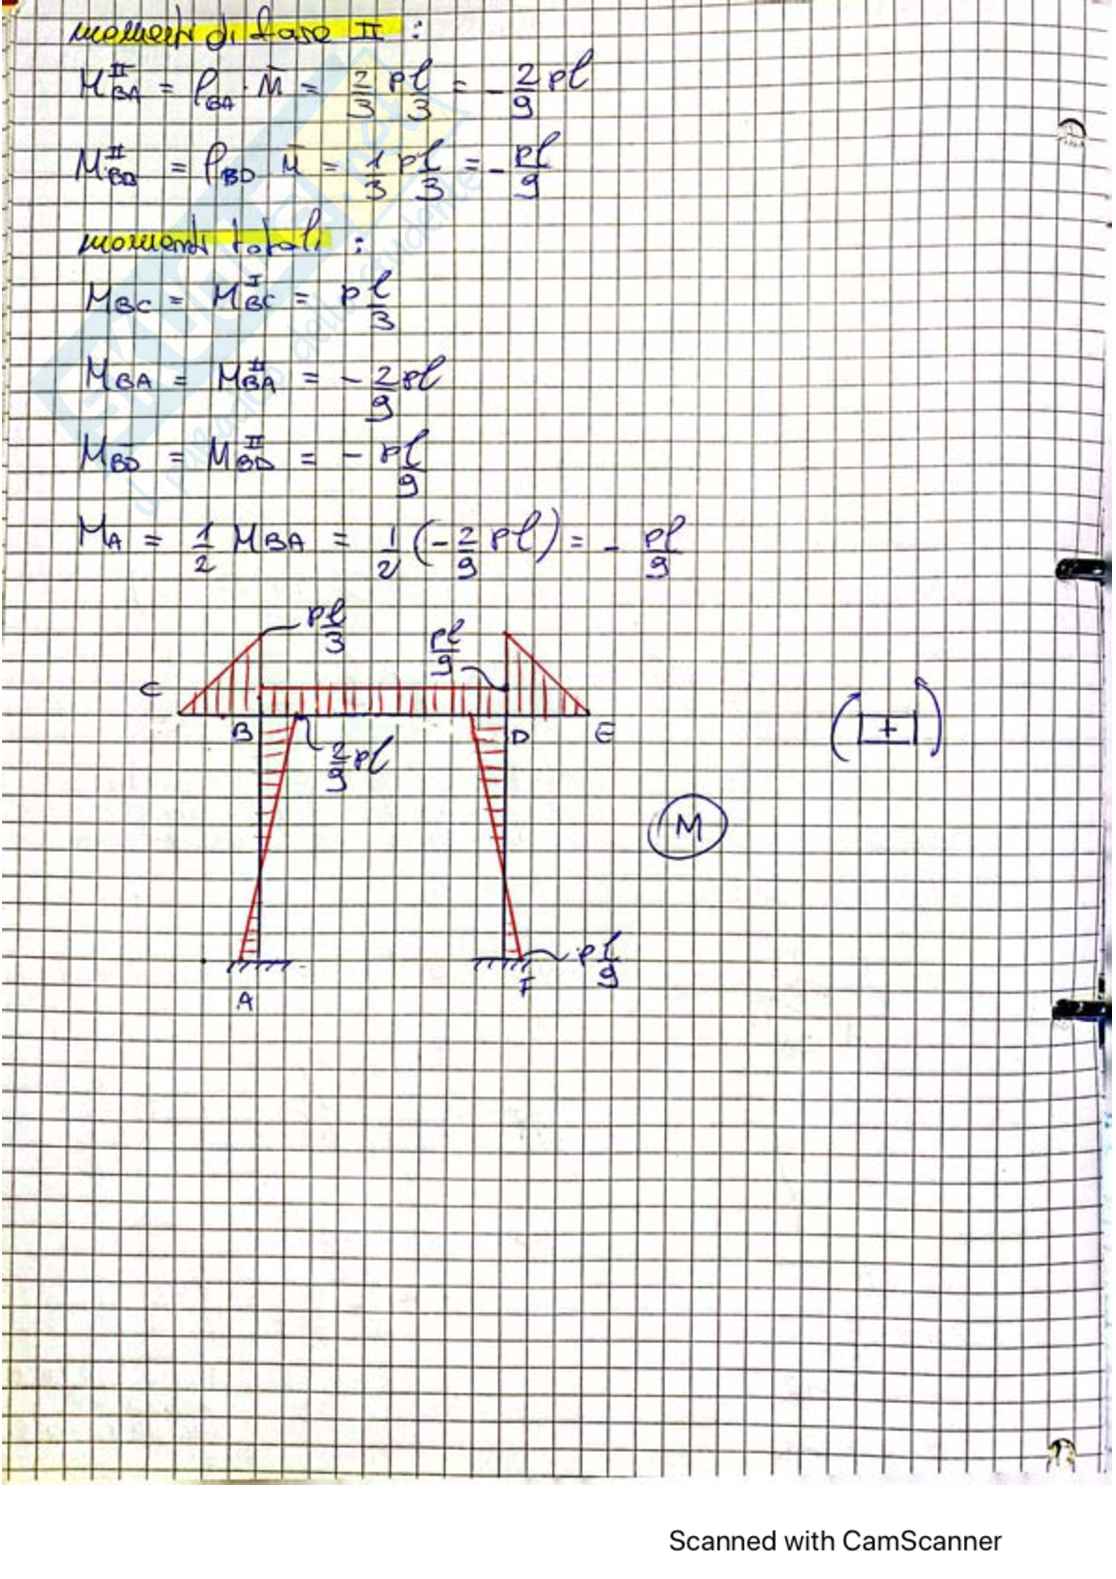 momenti di fase II :
M^II_BA = ρ_BA · M̄ = 2/3 Pl/3 = - 2/9 Pl
M^II_BD = ρ_BD M̄ = 1/3 Pl/3 = - Pl/9
momenti totali :
M_BC = M^I_BC = P l/3
M_BA = M^II_BA = - 2/9 Pl
M_BD = M^II_BD = - Pl/9
M_A = 1/2 M_BA = 1/2 (- 2/9 Pl) = - Pl/9
Pl/3
Pl/9
C
B
D
E
+
2/9 Pl
M
Pl/9
A
F
Scanned with CamScanner